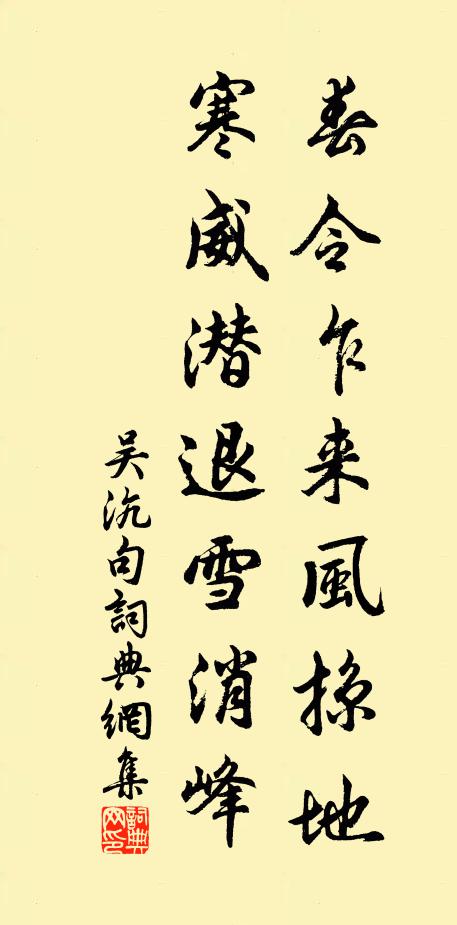 春令乍来風掠地
寒威潜退雪消峰
吴沆句詞典網集
詞典网印